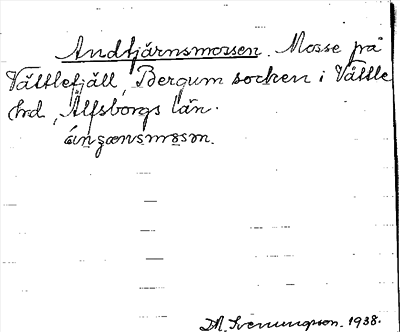 Andtjärnsmossen. Mosse på
Vättlefjäll, Bergum socken i Vättle
hd, Älfsborgs län.
D.A. Svenungson. 1938.